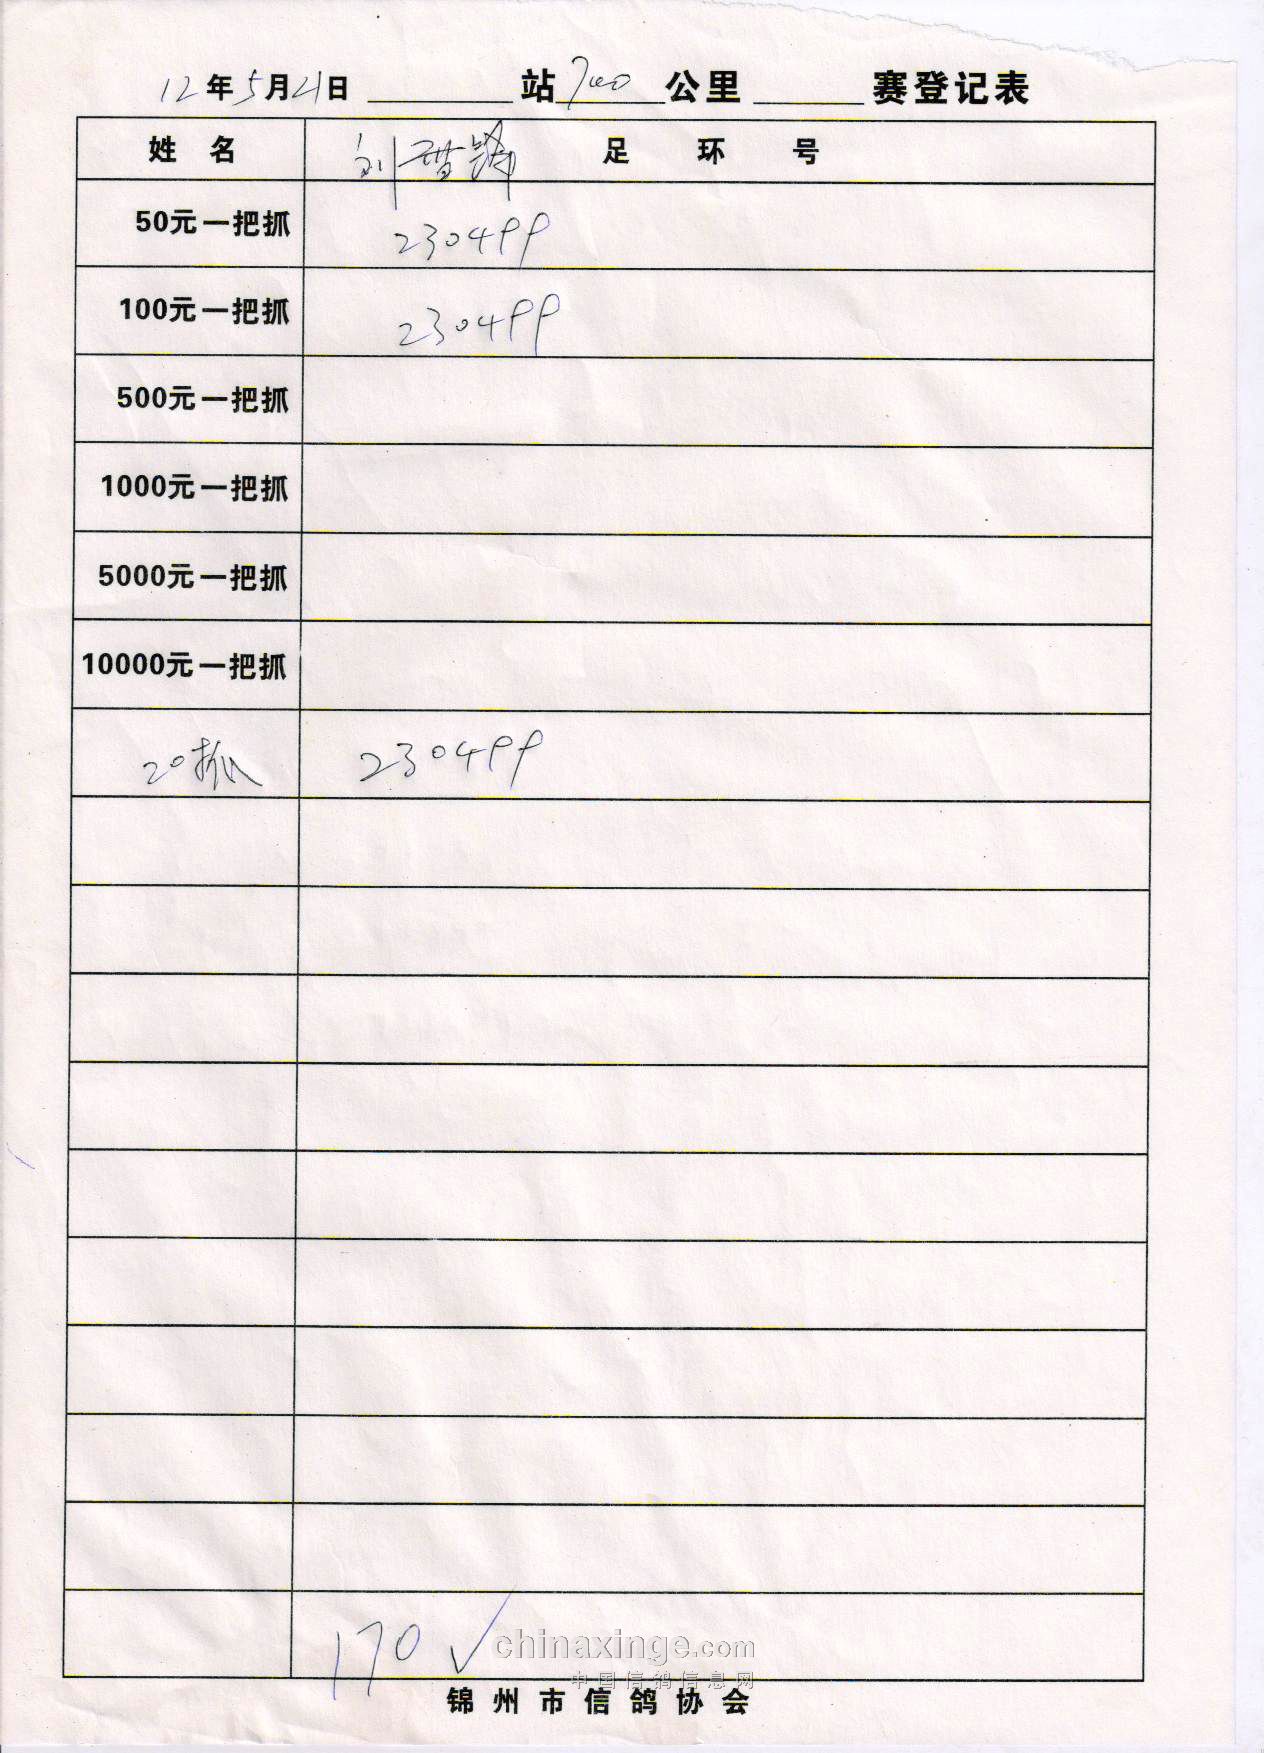 12年5月21日 站700公里 赛登记表
姓 名 足 环 号
50元一把抓 230499
100元一把抓 230499
500元一把抓
1000元一把抓
5000元一把抓
10000元一把抓
20抓 230499
170 √
chinaxinge.com
中国信鸽信息网
锦州市信鸽协会